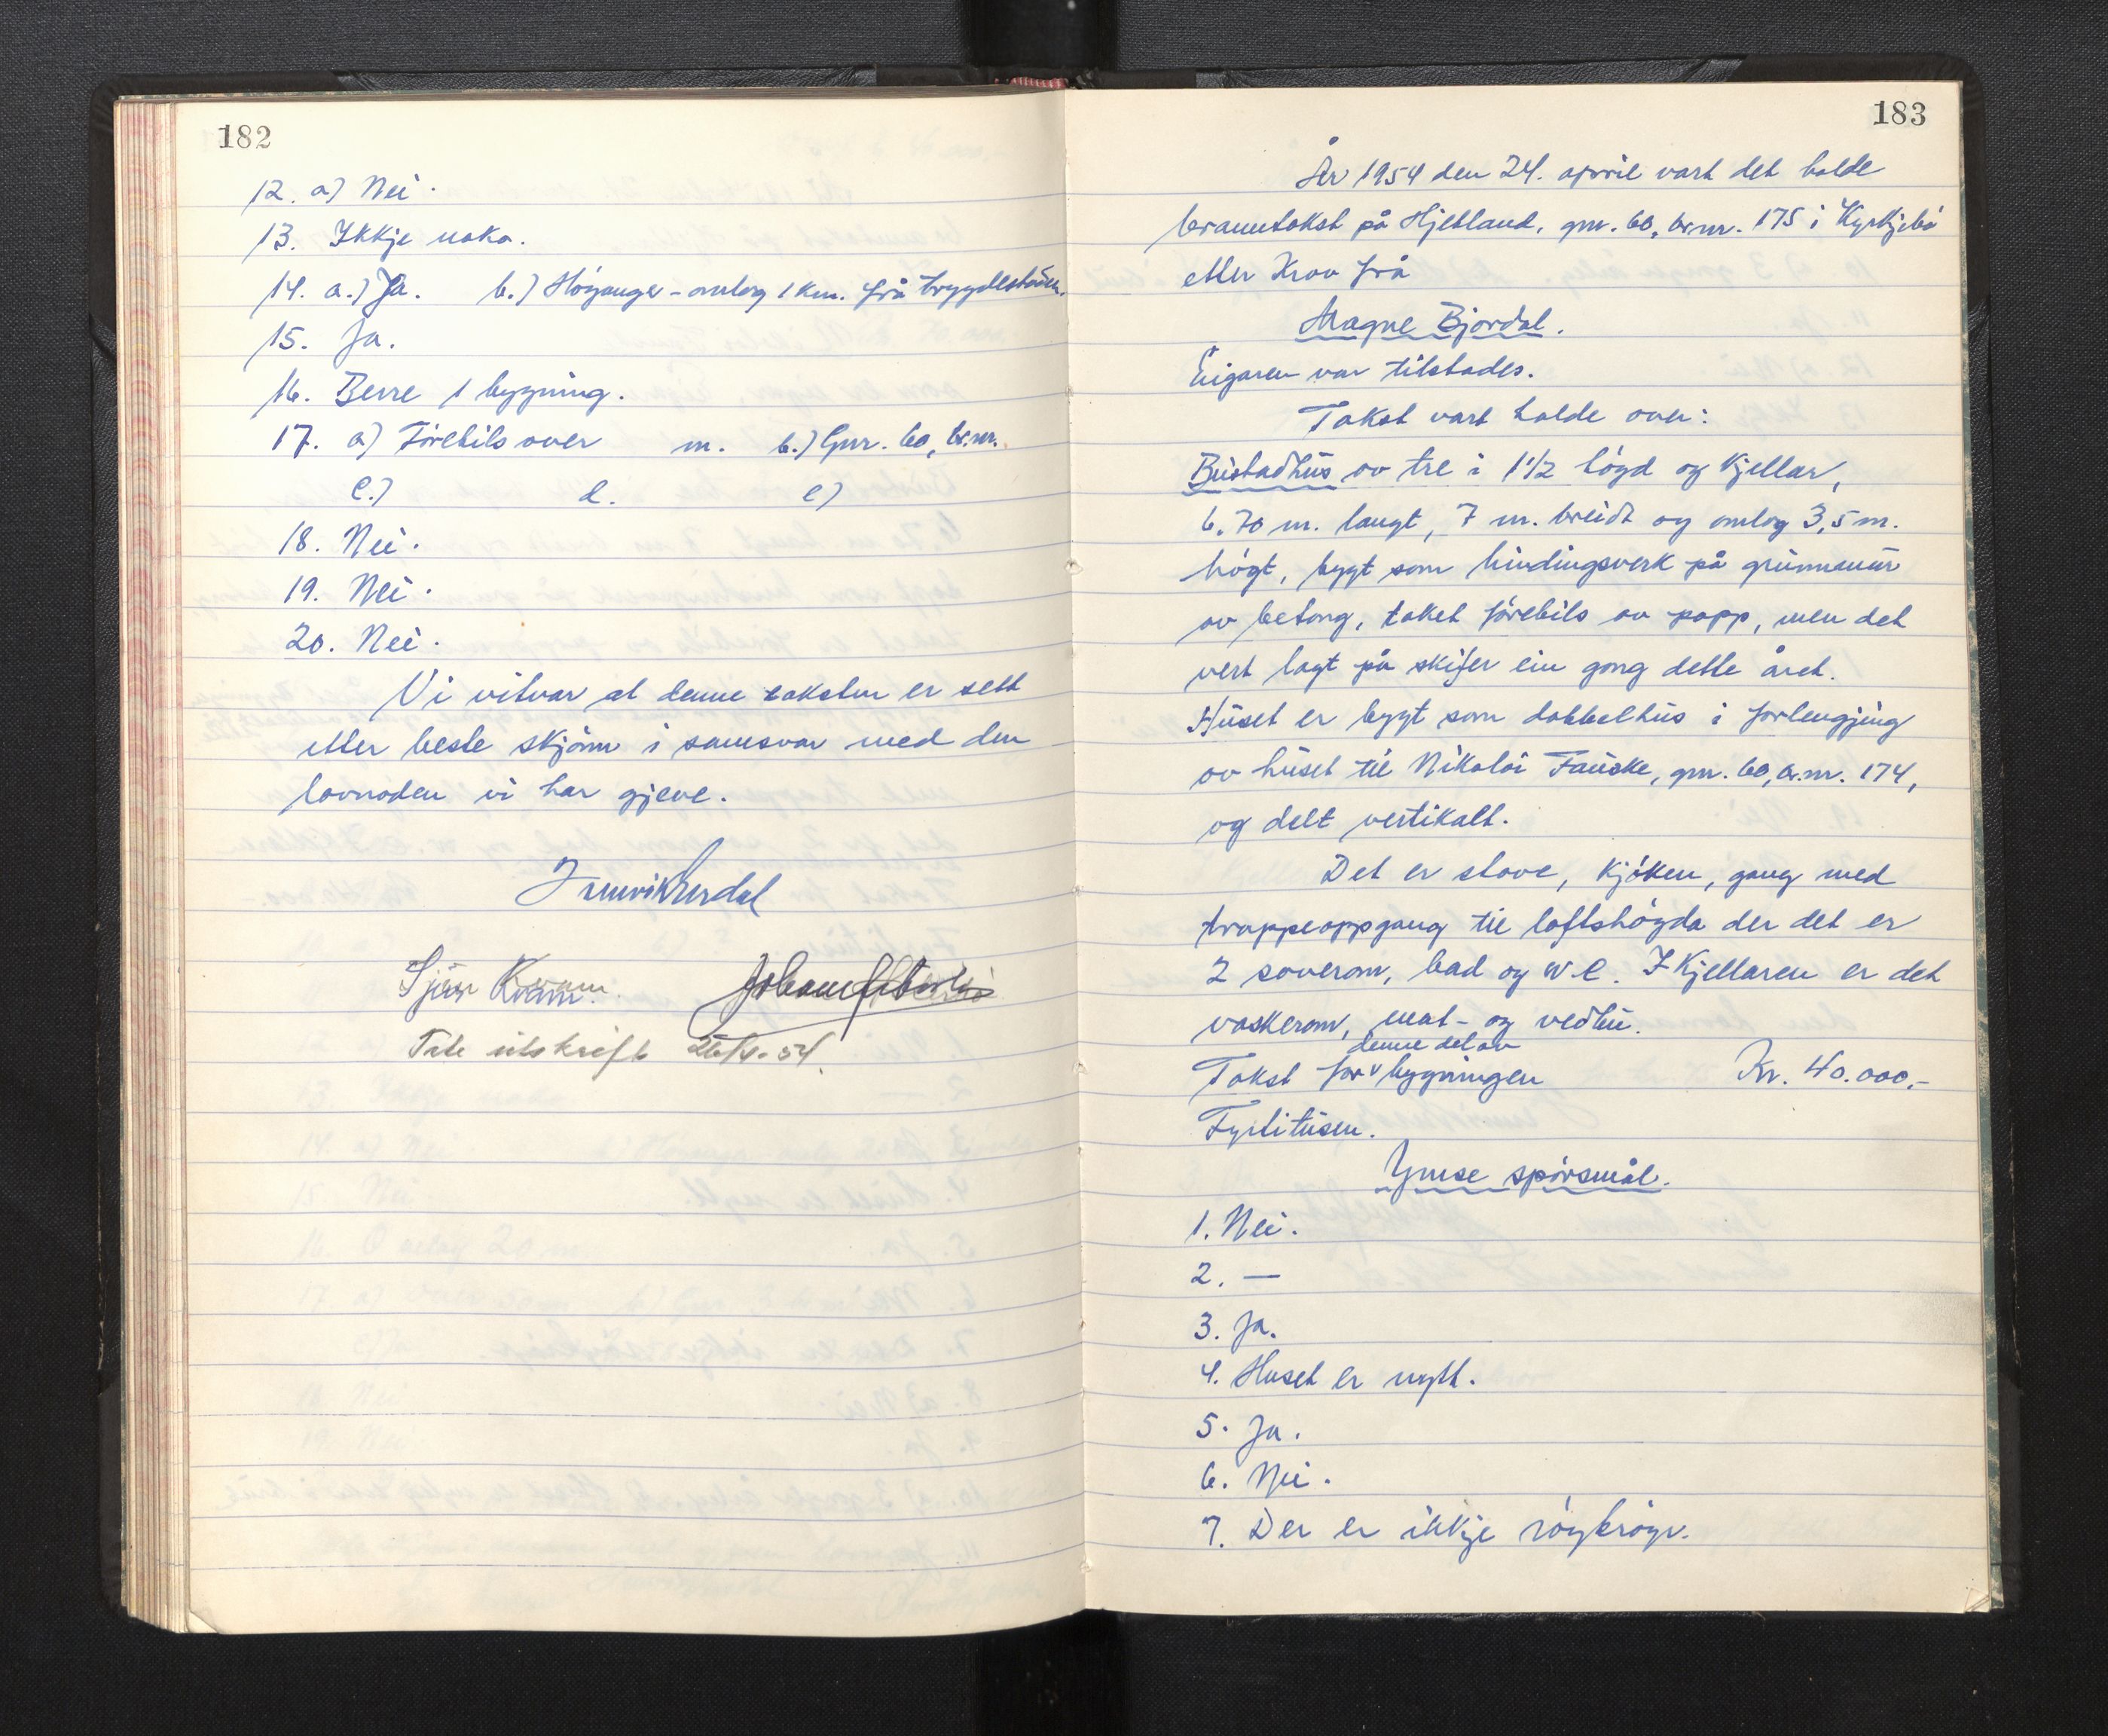 182
12. a) Nei.
13. Ikkje noko.
14. a.) Ja. b.) Höyanger - omlag 1 km. frå trygdestaden.
15. Ja.
16. Berre 1 bygning.
17. a) Förebils over m. b.) Gnr. 60, br.nr.
c.) d. e)
18. Nei.
19. Nei.
20. Nei.
Vi vitnar at denne taksten er sett
etter beste skjönn i samsvar med den
lovnaden vi har gjeve.
Kvam.
26/4-54.
183
År 1954 den 24. april vart det halde
branntakst på Hjetland, gnr. 60, br.nr. 175 i Kyrkjebö
etter krav frå
Magne Bjordal.
Eigaren var tilstades.
Takst vart halde over:
Bustadhus av tre i 1 1/2 högd og kjellar,
6.70 m. langt, 7 m. breidt og omlag 3,5 m.
högt, bygt som bindingsverk på grunnmur
av betong, taket förebils av papp, men det
vert lagt på skifer ein gong dette året.
Huset er bygt som dobbelthus i forlengjing
av huset til Nikolai Fauske, gnr. 60, br.nr. 174,
og delt vertikalt.
Det er stove, kjöken, gang med
trappeoppgang til loftshögda der det er
2 soverom, bad og w.c. I kjellaren er det
vaskerom, mat- og vedbu.
denne del av
Takst for v bygningen Kr. 40.000,-
Fyrtitusen.
Ymse spörsmål.
1. Nei.
2. —
3. Ja.
4. Huset er nytt.
5. Ja.
6. Nei.
7. Der er ikkje röykröyr.